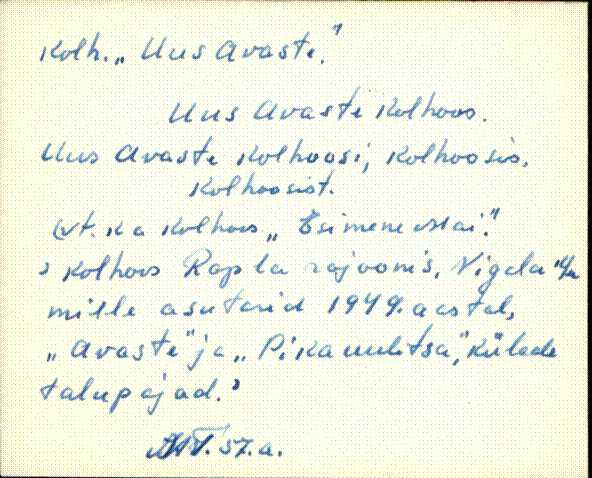 Kolh. „Uus Avaste."
Uus Avaste Kolhoos.
Uus Avaste Kolhoosi, Kolhoosis,
Kolhoosist.
(vt. ka Kolhoos „Esimene Mai."
› Kolhoos Rapla rajoonis, Vigala k/n
mille asutasid 1949. aastal,
„Avaste" ja „Pikauulitsa", külade
talupojad. ›
57. a.